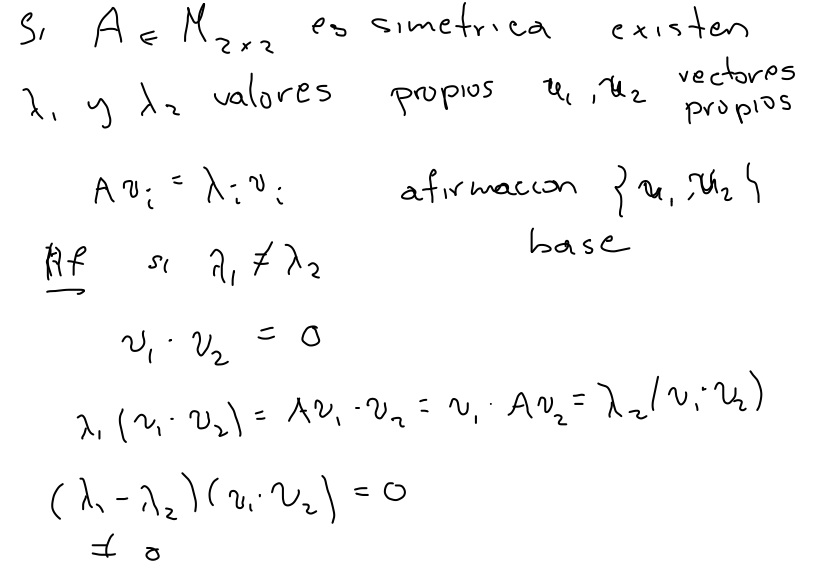 Si A ∈ M₂ₓ₂ es simetrica existen
λ₁ y λ₂ valores propios v₁, v₂ vectores propios
Avᵢ = λᵢvᵢ afirmaccion {v₁, v₂} base
Af si λ₁ ≠ λ₂
v₁ · v₂ = 0
λ₁(v₁ · v₂) = Av₁ · v₂ = v₁ · Av₂ = λ₂(v₁ · v₂)
(λ₁ - λ₂)(v₁ · v₂) = 0
≠ 0